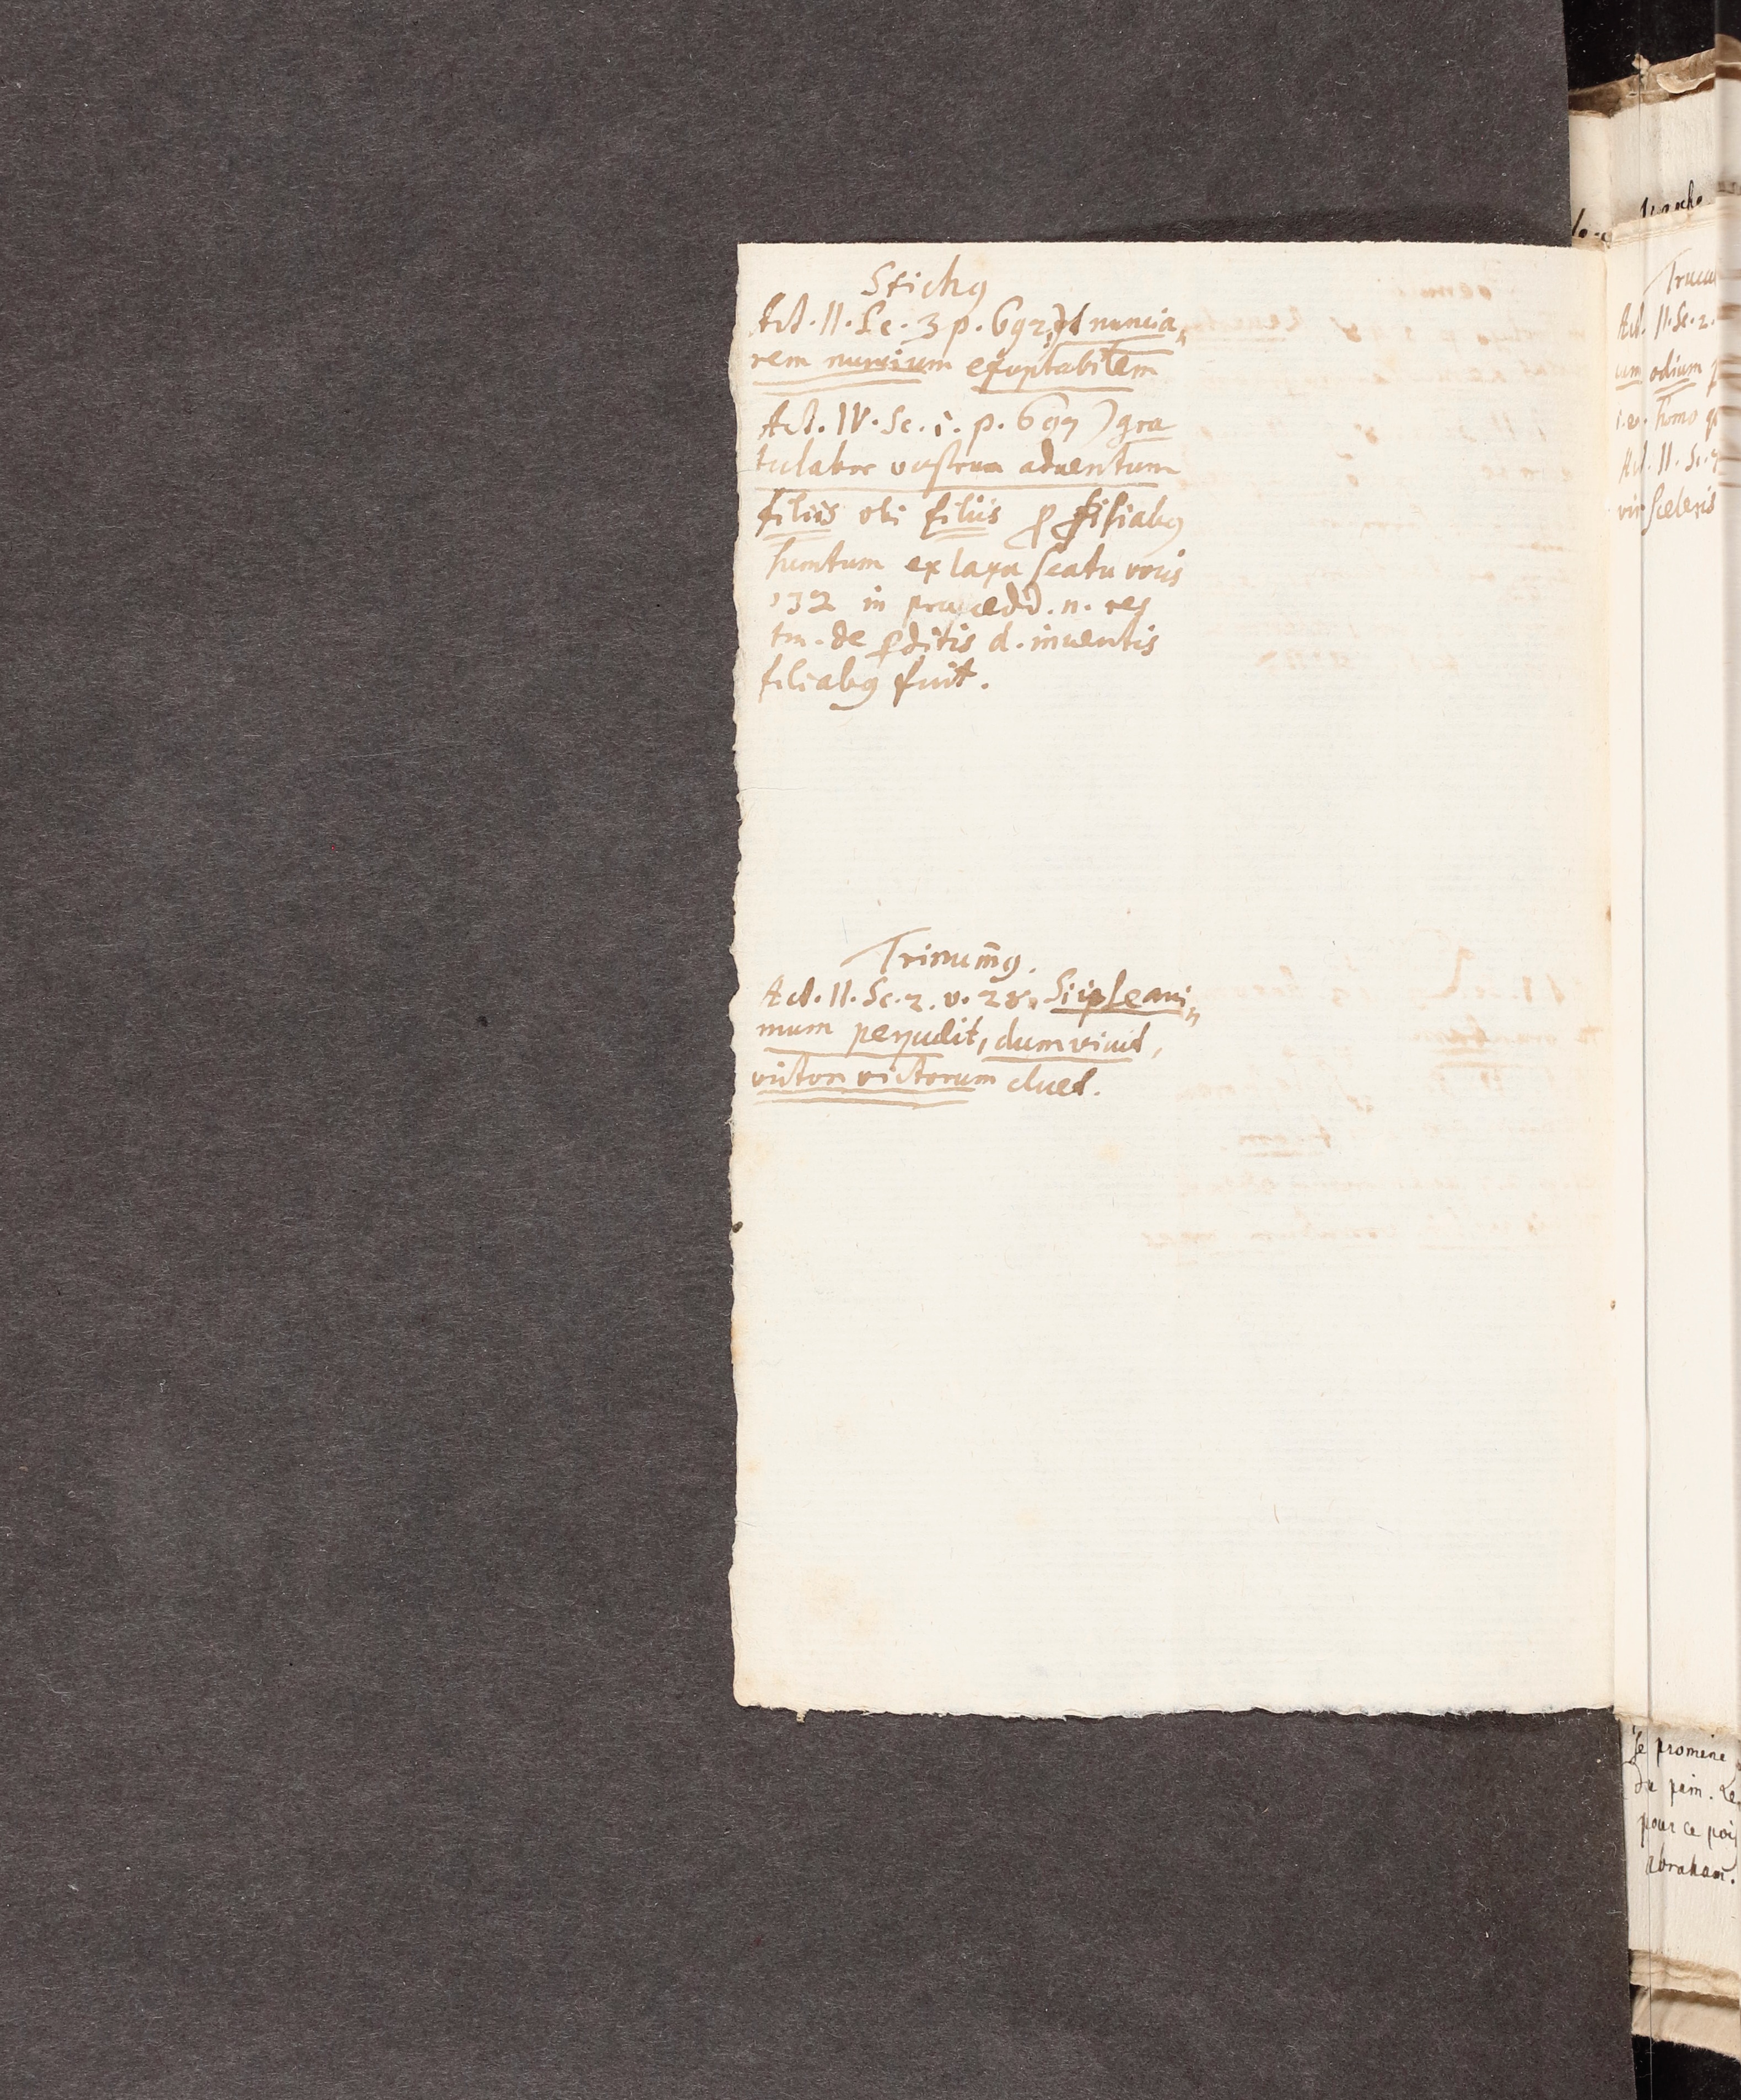 Stichꝰ
Act. II. Sc. 3 p. 692) ut nuncia„
rem nuncium exoptabilem
Act. IV. Sc. i. p. 697) gra
tulabor vostrum aduentum
filiis ubi filiis ꝓ filiabꝰ
sumtum ex laxa
132 in
tm. de ꝑditis d. inventis
filiabꝰ fuit.
Trinum̄ꝰ.
Act. II. Sc. 2. v. 28. Si ipse ani„
mum perpulit, dum vivit,
victor victorum cluet.
Trucu
Act. II. Sc. 2.
um odium p
i.e. homo q
Act. II. Sc. 7
vir sceleris
Je promene
du pain. Le
pour ce poi
Abraham.